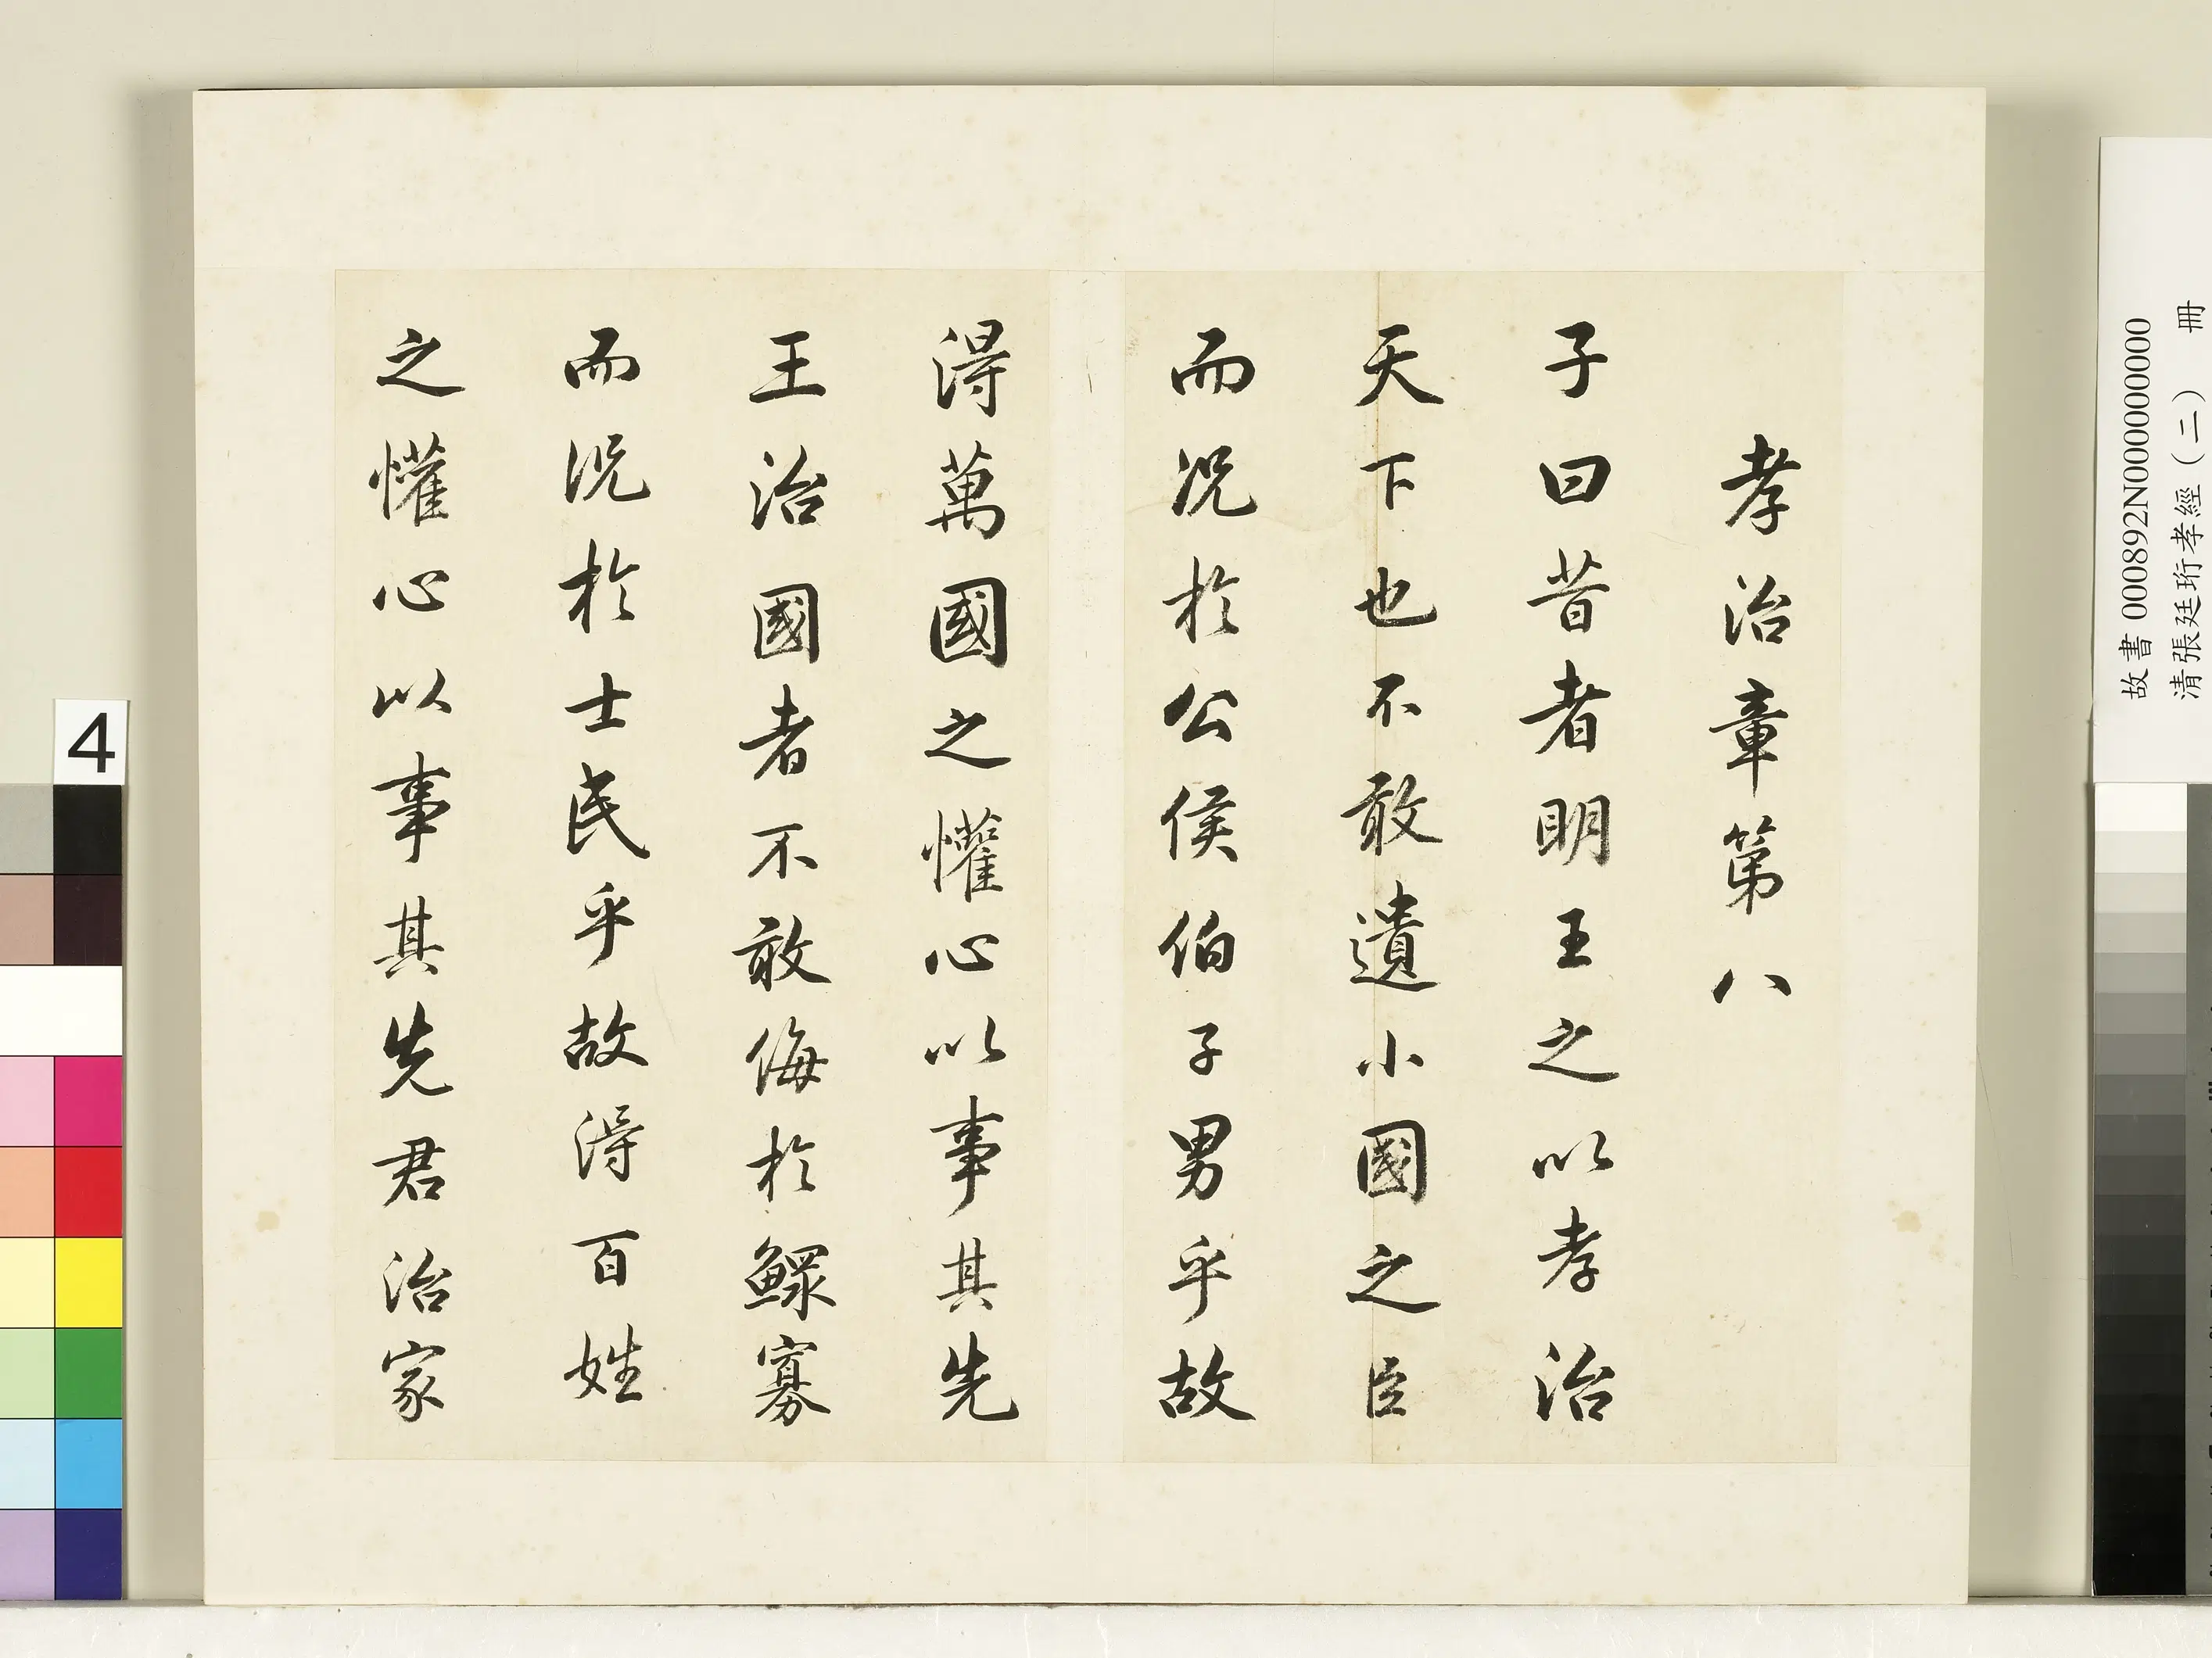 孝治章第八
子曰昔者明王之以孝治
天下也不敢遺小國之臣
而況於公侯伯子男乎故
得萬國之懽心以事其先
王治國者不敢侮於鰥寡
而況於士民乎故得百姓
之懽心以事其先君治家
故書 000892N000000000
清張廷珩孝經（二） 冊
4